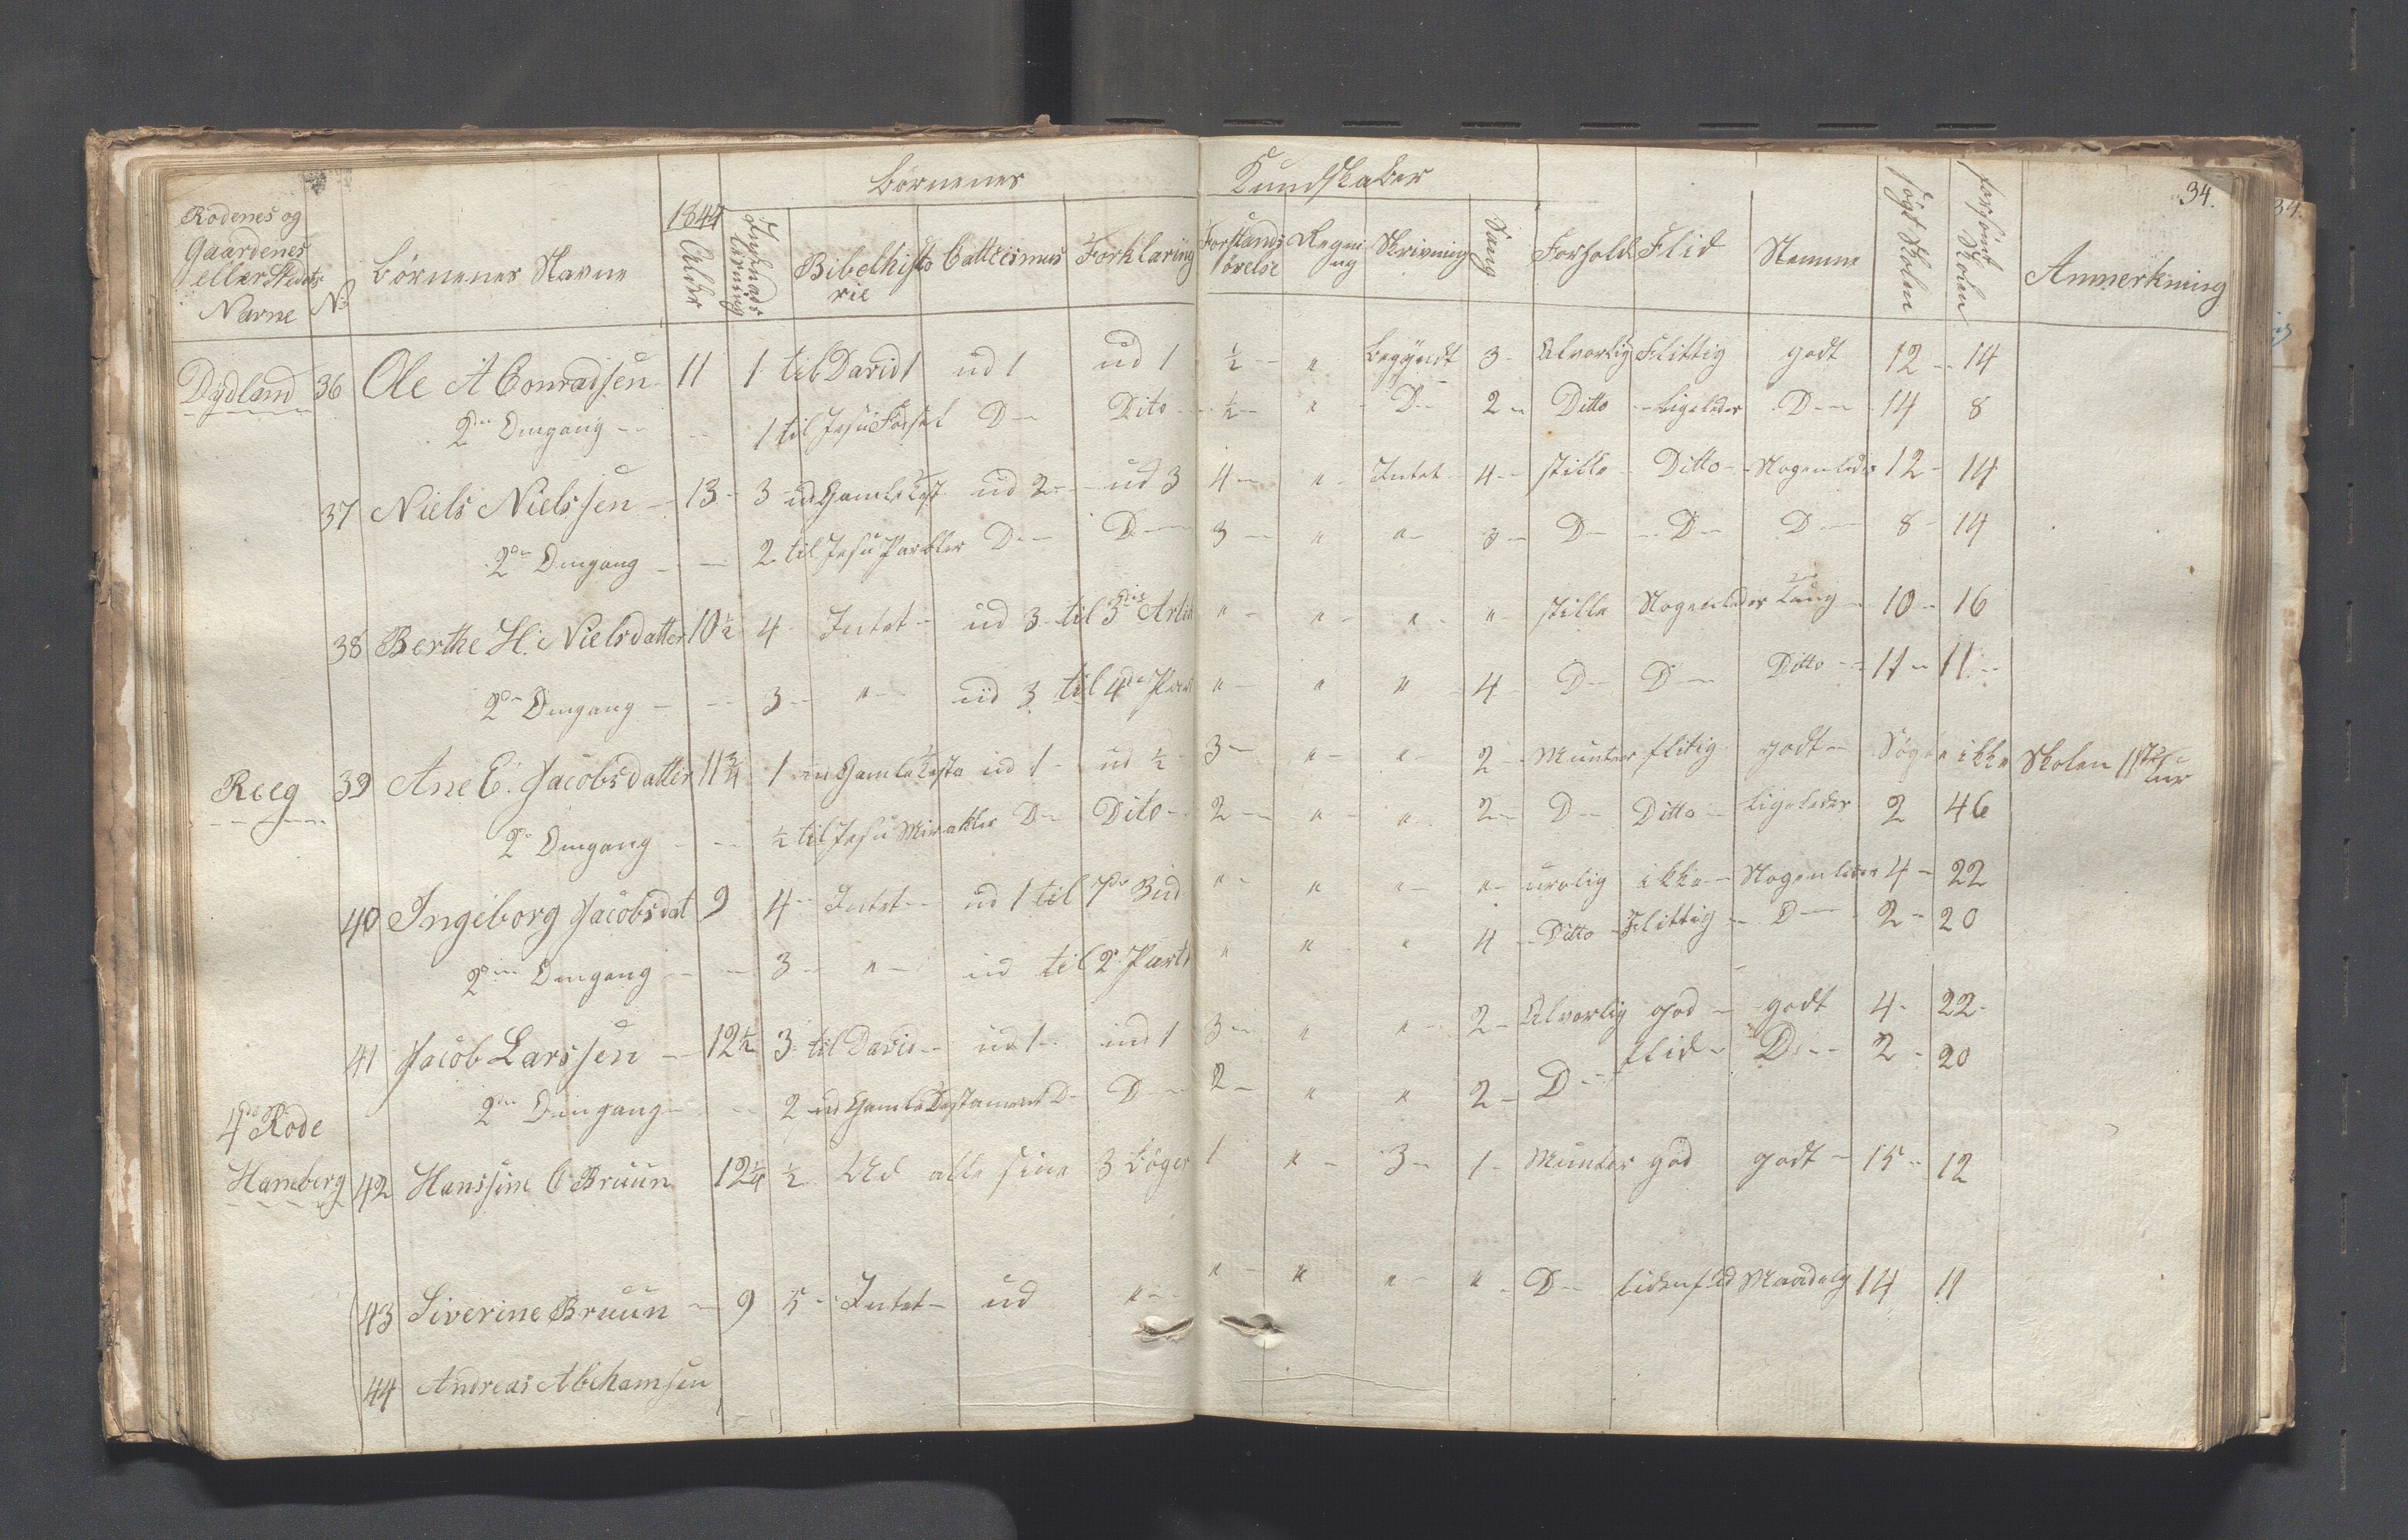 34.
Börnenes Kundskaber
Rodenes og Gaardenes eller Stedets Navne No Börnenes Navne 1844 Alder Indenads Bibelhistorie Cattecismus Forklaring Forstands övelse Regning Skrivning Sang Forhold Flid Nemme sögt Skolen forsömt Skolen Anmerkning
Dydland 36 Ole A Conradsen 11 1 til David 1 ud 1 ud 1 ½ " begyndt 3 Alvorlig Flittig godt 12 14
2den Omgang 1 til Jesu Födsel D Dito ½ " D 2 Ditto Ligeledes D 14 8
37 Niels Nielssen 13 3 ud Gamle Test ud 2 ud 3 4 " Intet 4 stille Ditto Nogenledes 12 14
2den Omgang 2 til Jesu Parabler D D 3 " " 3 D D D 8 14
38 Berthe H. Nielsdatter 10½ 4 Intet ud 3 til 3die Artik " " " " stille Nogenledes 10 16
2den Omgang 3 " ud 3 til 4de Part " " " 4 D D Ditto 11 11
Reeg 39 Ane E. Jacobsdatter 11¾ 1 ud Gamle Testa ud 1 ud ½ 3 " " 2 Munter flitig godt Sögte ikke Skolen 1ste Tur
2den Omgang ½ til Jesu Mirakler D Dito 2 " " 2 D Ditto Ligeledes 2 46
40 Ingeborg Jacobsdat 9 4 Intet ud 1 til 7de Bud " " " " urolig ikke Nogenledes 4 22
2den Omgang 3 " ud til 2 Part " " " 4 Ditto Flittig D 2 20
41 Jacob Larssen 12½ 3 til David ud 1 ud 1 3 " " 2 Alvorlig god godt 4 22
2den Omgang 2 ud Gamle Testament D D 2 " " 2 D flid D 2 20
4de Rode
Hamberg 42 Hanssine C Bruun 12¼ ½ Ud alle sine 3 böger 1 " 3 1 Munter god godt 15 12
43 Siverine Bruun 9 5 Intet ud " " " " " D liden flid Maadelig 14 11
44 Andreas Abrhamsen